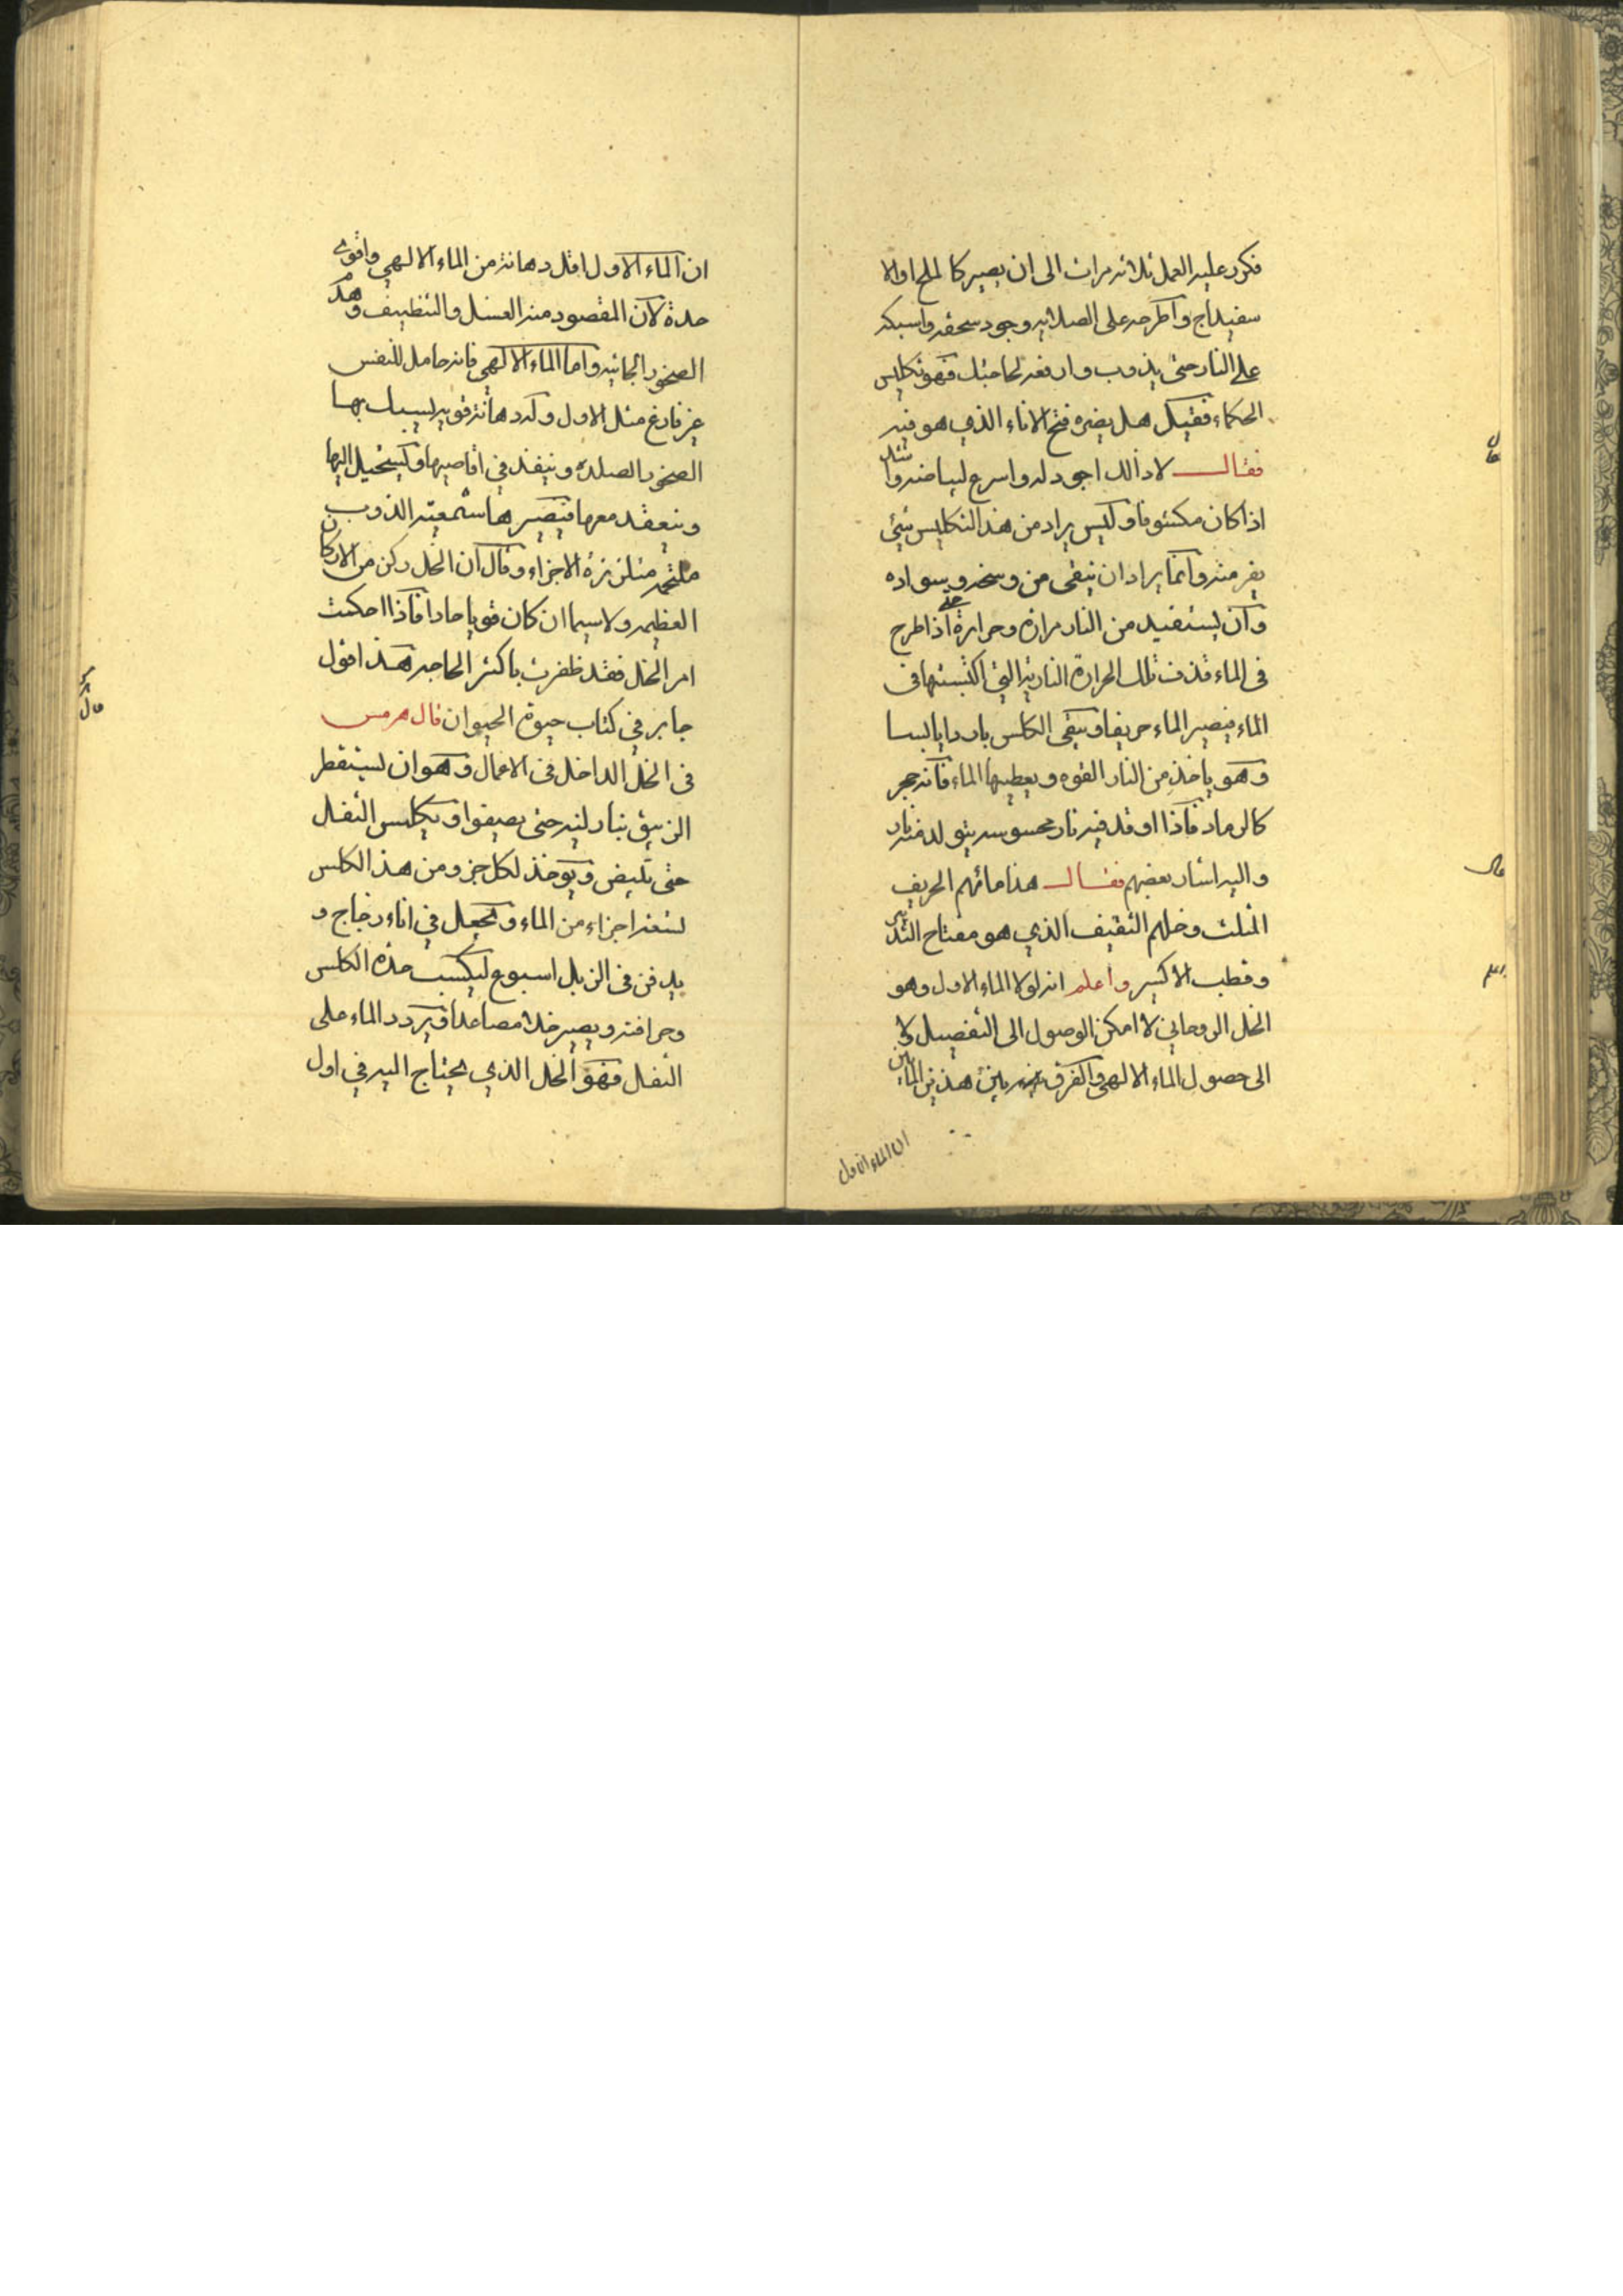 فكرر عليه العمل ثلاثه مرات الى ان يصير كالملح او الا
سفيداج واطرحه على الصلايه وجود سحقه واسبكه
على النار حتى يذوب وارفعه لحاجتك فهو تكليس
الحكماء فقيل هل يضره فتح الاناء الذي هو فيه
فقال لا ذالك اجود له واسرع لبياضه وا
اذا كان مكشوفا وليس يراد من هذا التكليس شيئ
يفر منه وانما يراد ان ينقى من وسخه وسواده
وان يستفيد من النار مرارة وحرارة اذا طرح
فى الماء قذفت تلك الحرارة الناريه التي اكتسبتها فى
الماء فيصير الماء حريفا ويبقى الكلس باردا يابسا
وهو ياخذ من النار القوه ويعطيها الماء فانه حجر
كالرماد فاذا اوقد فيه نار محسوسه يتولد منه نار
واليه اشار بعضهم فقال هذا مائهم الحريف
المثلث وخلهم الثقيف الذي هو مفتاح التدبير
وقطب الاكسير واعلم انه لولا الماء الاول وهو
الخل الروحاني لا امكن الوصول الى التفصيل ولا
الى حصول الماء الالهي والفرق بين هذين المائين
ان الماء الاول
ان الماء الاول اقل دهانة من الماء الالهي واقوى
حدة لان المقصود منه الغسل والتنظيف وهدم
الصخور الجاثيه واما الماء الالهي فانه حامل للنفس
غير فارغ مثل الاول وله دهانة قويه ليسبك بها
الصخور الصلده وينفذ في اقاصيها ويستحيل اليها
وينعقد معها فيصيرها شمعية الذوب
ملتحمه متلززة الاجزاء وقال ان الخل ركن من الاركان
العظيمه ولا سيما ان كان قويا حادا فاذا احكمت
امر الخل فقد ظفرت باكثر الحاجه هذا قول
جابر في كتاب حيوة الحيوان قال هرمس
فى الخل الداخل فى الاعمال وهو ان يستقطر
الزيبق بنار لينه حتى يصفوا ويكلس الثفل
حتى تليض ويوخذ لكل جزو من هذا الكلس
تسعة اجزاء من الماء ويجعل في اناء زجاج و
يدفن فى الزبل اسبوع ليكسب حدة الكلس
وحرافته ويصير خلا مصاعدا ويردد الماء على
الثفل فهو الخل الذي يحتاج اليه في اول